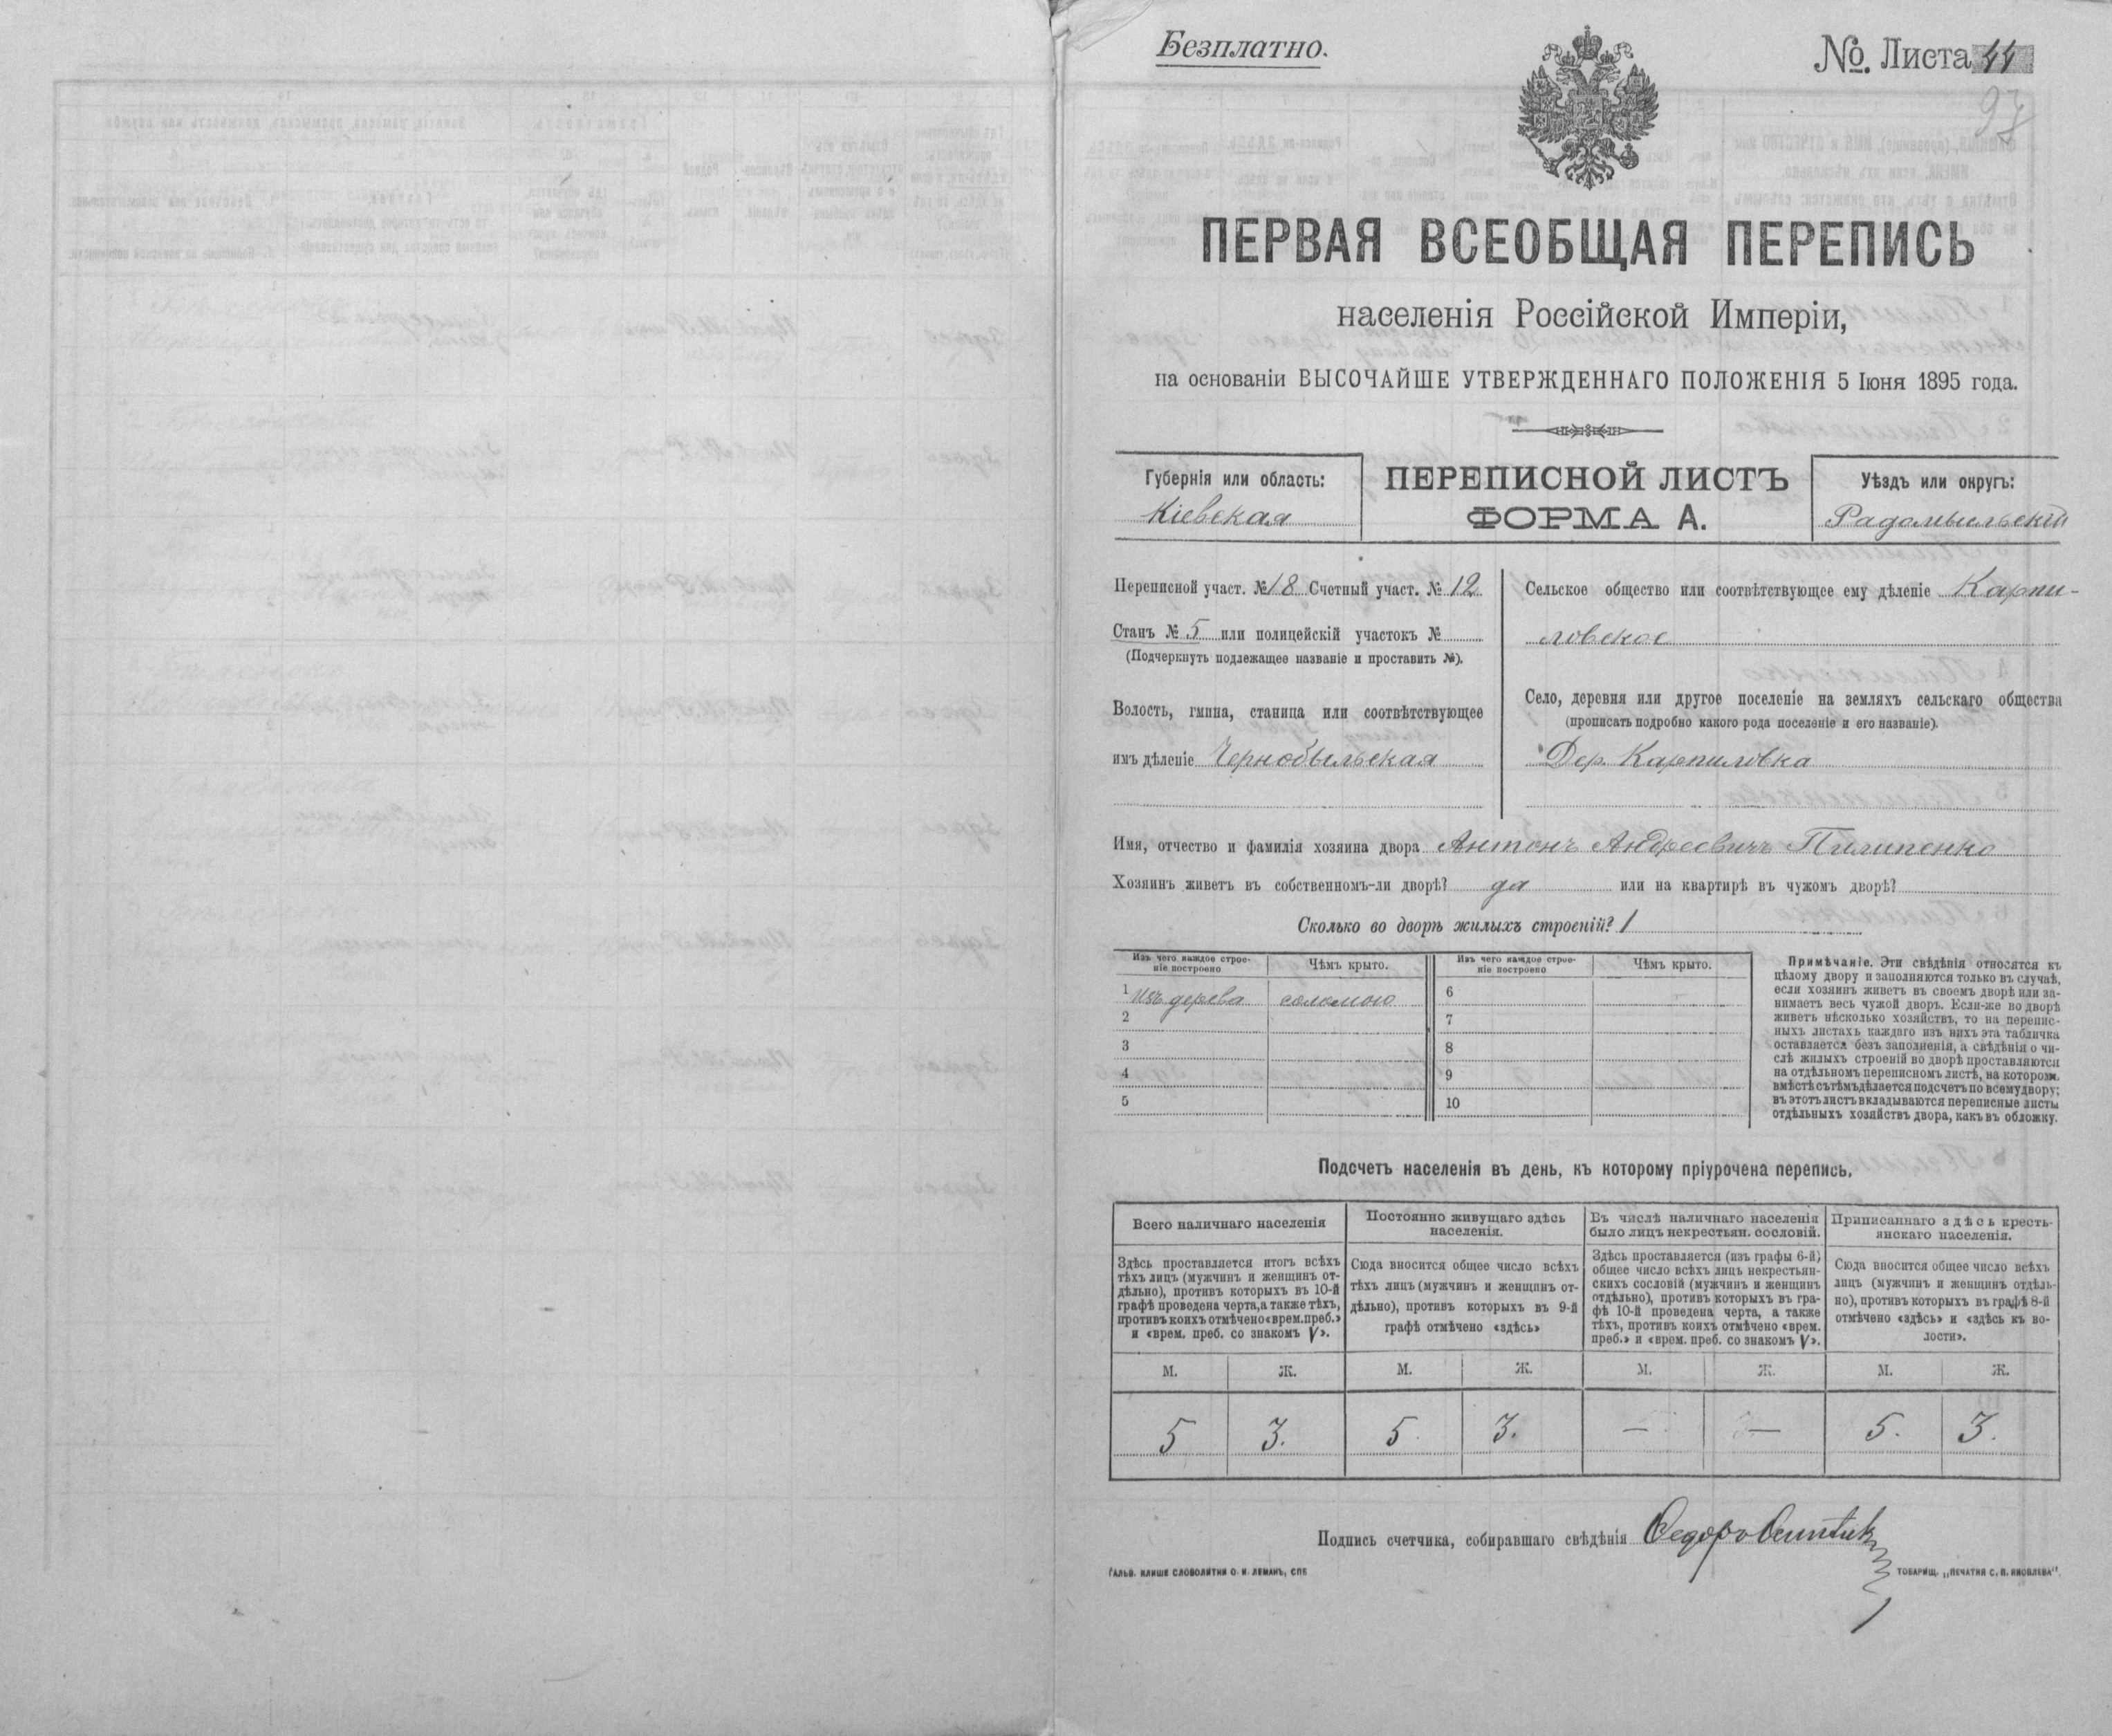 Безплатно.
№. Листа 44
97
ПЕРВАЯ ВСЕОБЩАЯ ПЕРЕПИСЬ
населенія Россійской Имперіи,
на основаніи ВЫСОЧАЙШЕ УТВЕРЖДЕННАГО ПОЛОЖЕНІЯ 5 Іюня 1895 года.
Губернія или область:
Кіевская
ПЕРЕПИСНОЙ ЛИСТЪ
ФОРМА А.
Уѣздъ или округъ:
Радомысльскій
Переписной участ. № 18 Счетный участ. № 12
Станъ № 5 или полицейскій участокъ №
(Подчеркнуть подлежащее названіе и проставить №).
Волость, гмина, станица или соотвѣтствующее
имъ дѣленіе Чернобыльская
Сельское общество или соотвѣтствующее ему дѣленіе Карпи-
ловское
Село, деревня или другое поселеніе на земляхъ сельскаго общества
(прописать подробно какого рода поселеніе и его названіе).
Дер. Карпиловка
Имя, отчество и фамилія хозяина двора Антонъ Андреевичъ Пилипенко
Хозяинъ живетъ въ собственномъ-ли дворѣ? да или на квартирѣ въ чужомъ дворѣ?
Сколько во дворѣ жилыхъ строеній? 1
Изъ чего каждое строе-
ніе построено
Чѣмъ крыто.
Изъ чего каждое строе-
ніе построено
Чѣмъ крыто.
1 изъ дерева соломою 6
2 7
3 8
4 9
5 10
Примѣчаніе. Эти свѣдѣнія относятся къ
цѣлому двору и заполняются только въ случаѣ,
если хозяинъ живетъ въ своемъ дворѣ или за-
нимаетъ весь чужой дворъ. Если-же во дворѣ
живетъ нѣсколько хозяйствъ, то на перепис-
ныхъ листахъ каждаго изъ нихъ эта табличка
оставляется безъ заполненія, а свѣдѣнія о чи-
слѣ жилыхъ строеній во дворѣ проставляются
на отдѣльномъ переписномъ листѣ, на котором.
вмѣстѣ съ тѣмъ дѣлается подсчетъ по всему двору;
въ этотъ листъ вкладываются переписные листы
отдѣльныхъ хозяйствъ двора, какъ въ обложку.
Подсчетъ населенія въ день, къ которому пріурочена перепись.
Всего наличнаго населенія
Здѣсь проставляется итогъ всѣхъ
тѣхъ лицъ (мужчинъ и женщинъ от-
дѣльно), противъ которыхъ въ 10-й
графѣ проведена черта, а также тѣхъ,
противъ коихъ отмѣчено «врем. преб.»
и «врем. преб. со знакомъ V».
Постоянно живущаго здѣсь
населенія.
Сюда вносится общее число всѣхъ
тѣхъ лицъ (мужчинъ и женщинъ от-
дѣльно), противъ которыхъ въ 9-й
графѣ отмѣчено «здѣсь»
Въ числѣ наличнаго населенія
было лицъ некрестьян. сословій.
Здѣсь проставляется (изъ графы 6-й)
общее число всѣхъ лицъ некрестьян-
скихъ сословій (мужчинъ и женщинъ
отдѣльно), противъ которыхъ въ гра-
фѣ 10-й проведена черта, а также
тѣхъ, противъ коихъ отмѣчено «врем.
преб.» и «врем. преб. со знакомъ V».
Приписаннаго здѣсь кресть-
янскаго населенія.
Сюда вносится общее число всѣхъ
лицъ (мужчинъ и женщинъ отдѣль-
но), противъ которыхъ въ графѣ 8-й
отмѣчено «здѣсь» и «здѣсь къ во-
лости».
М. Ж. М. Ж. М. Ж. М. Ж.
5 3. 5. 3. — — 5. 3.
Подпись счетчика, собиравшаго свѣдѣнія Ѳедоръ
ГАЛЬВ. КЛИШЕ СЛОВОЛИТНИ О. И. ЛЕМАНЪ, СПБ
ТОВАРИЩ. „ПЕЧАТНЯ С. П. ЯКОВЛЕВА".